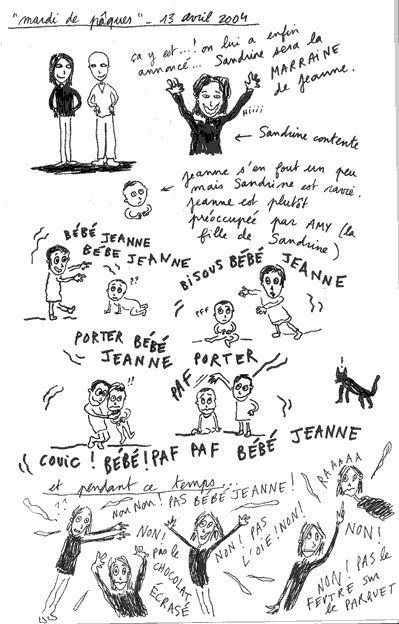 "mardi de pâques" - 13 avril 2004
ça y est...! on lui a enfin
annoncé... Sandrine sera la
MARRAINE
de Jeanne.
Hiiii
← Sandrine contente
← Jeanne s'en fout un peu
mais Sandrine est ravie.
Jeanne est plutôt
préoccupée par AMY (la
fille de Sandrine)
BÉBÉ JEANNE
BÉBÉ JEANNE
??
BISOUS BÉBÉ JEANNE
PFF
PORTER BÉBÉ
JEANNE
!?
PORTER
PAF
COUIC ! BÉBÉ! PAF PAF BÉBÉ JEANNE
et pendant ce temps...
NON NON! PAS BÉBÉ JEANNE!
RAAAAA
NON!
pas le
CHOCOLAT
ÉCRASÉ
NON! PAS
L'OIE! NON!
NON!
NON! PAS le
FEUTRE sur
le PARQUET